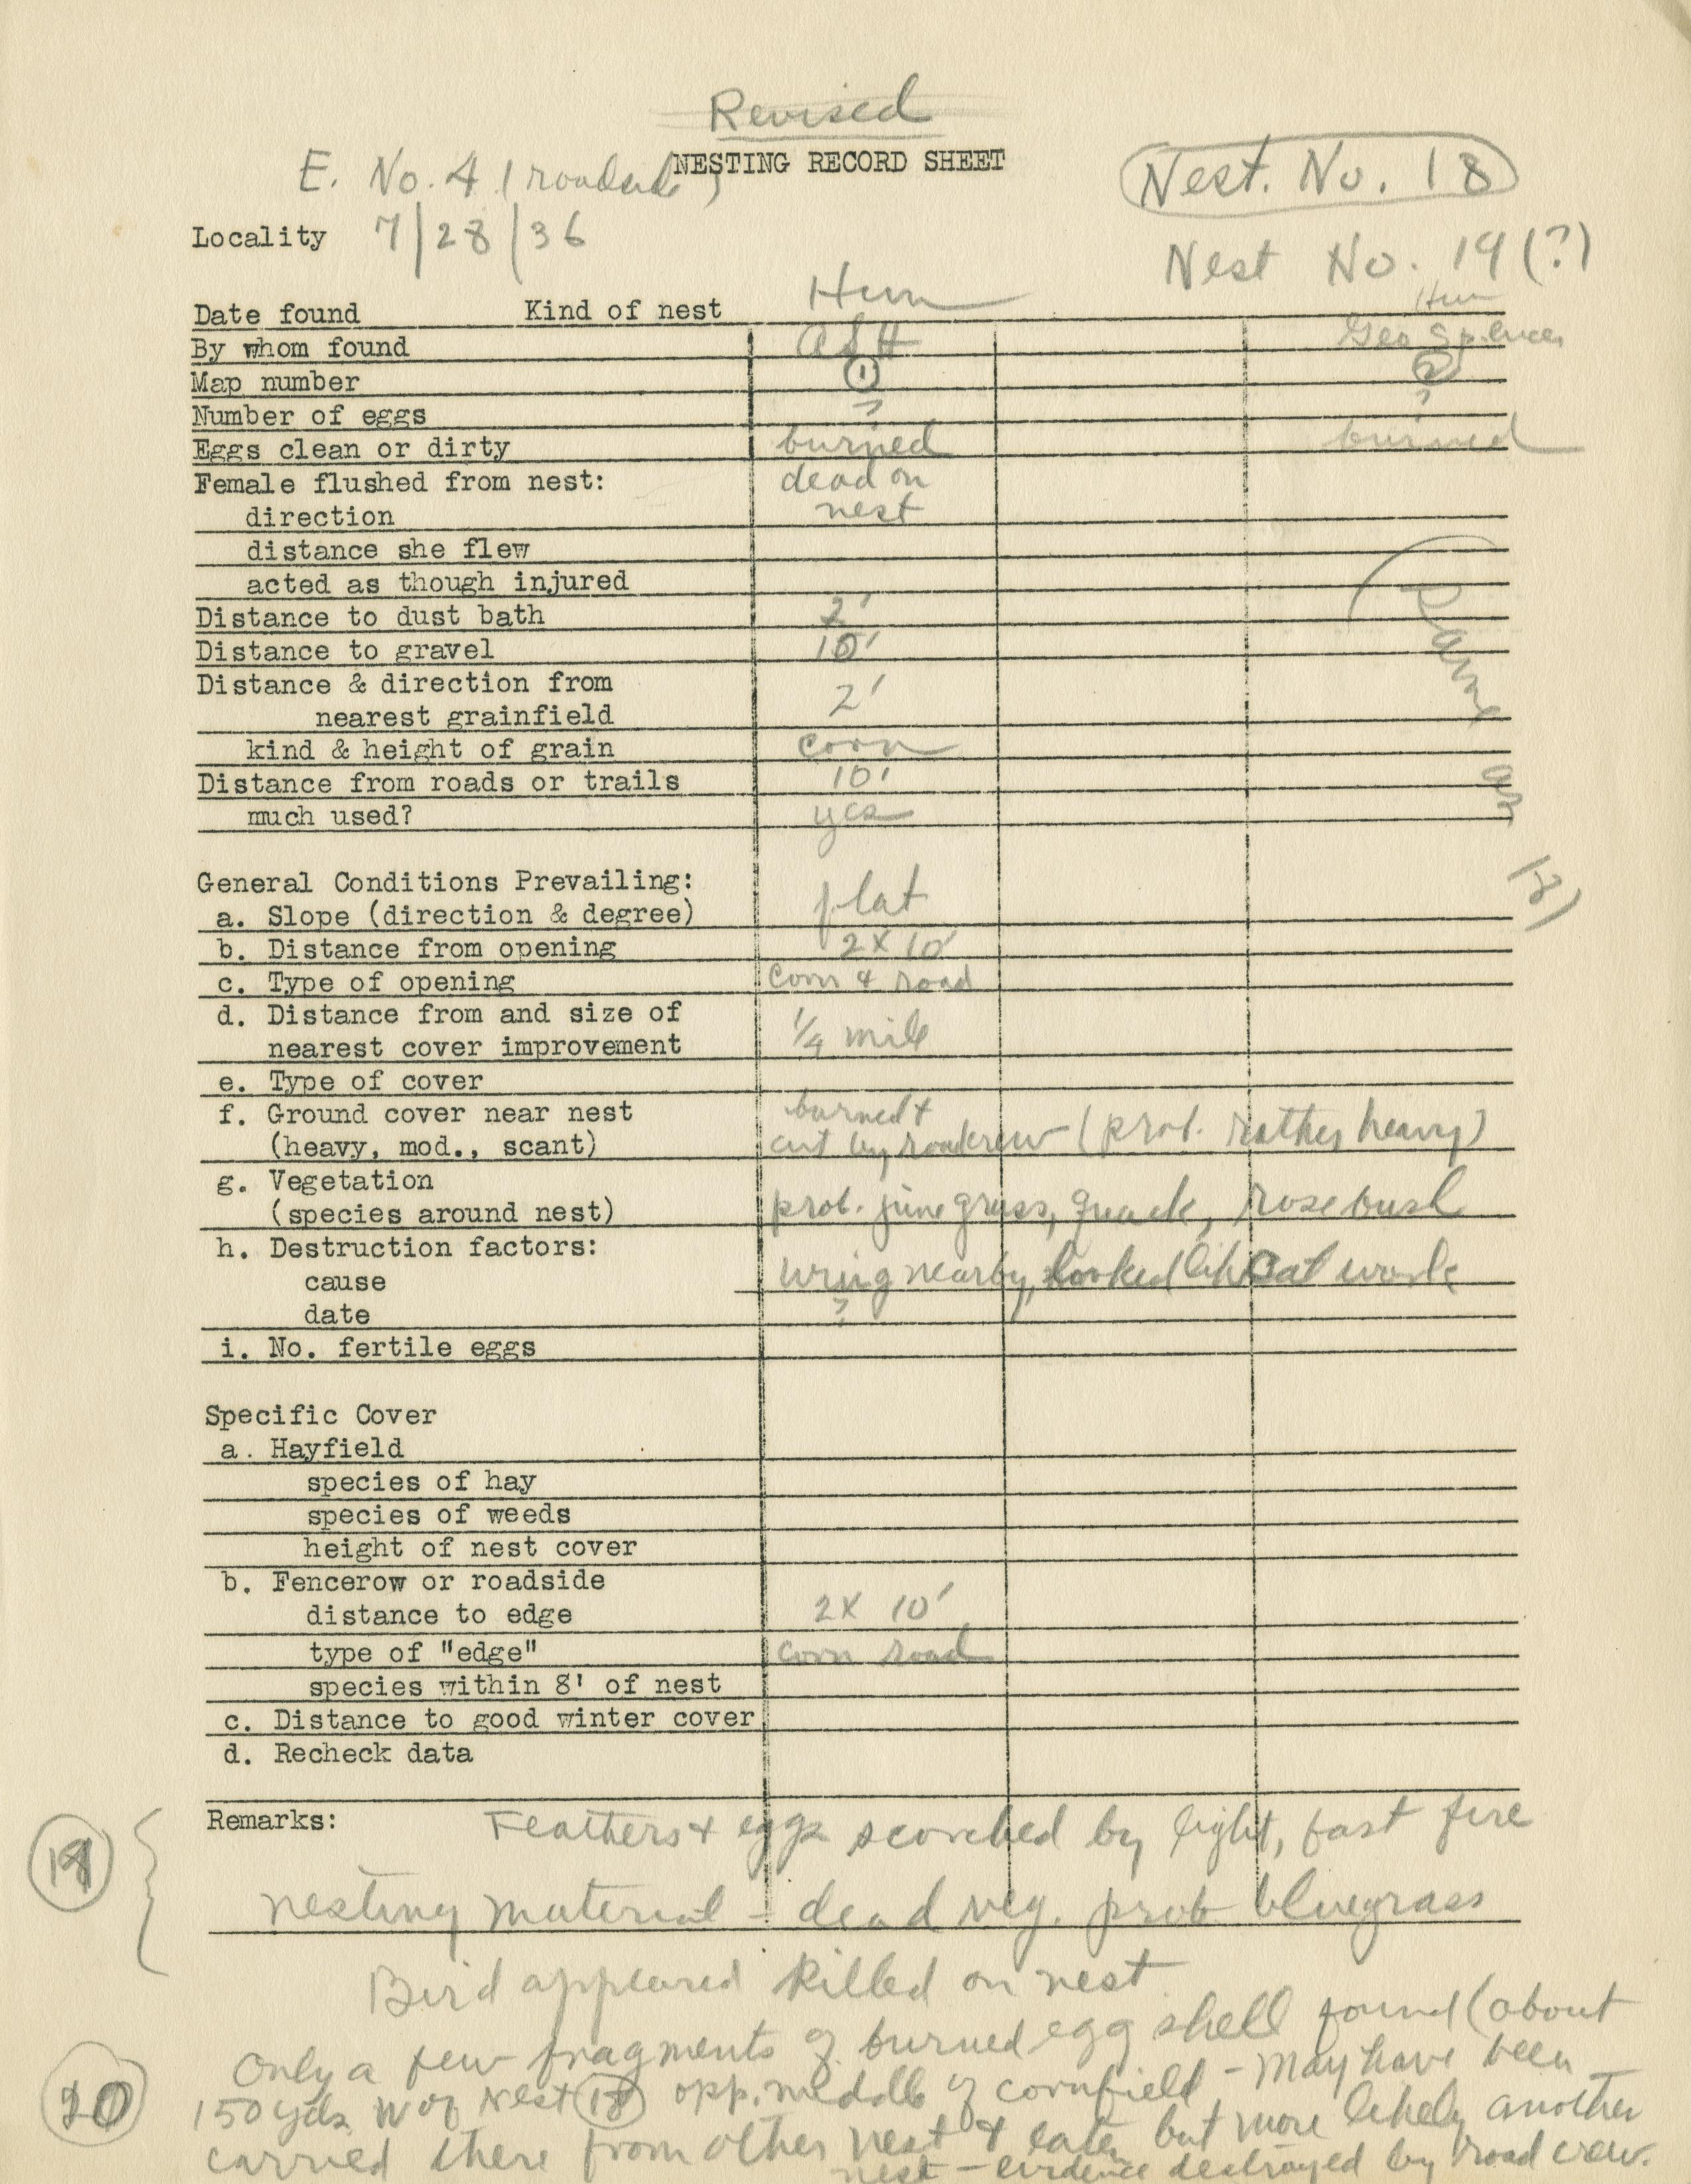 Revised
NESTING RECORD SHEET
E. No. 4 (roadside)
Nest. No. 18
Locality 7/28/36
Nest No. 19(?)
Date found Kind of nest Hun Hun
By whom found ASH Geo Spencer
Map number 1 2
Number of eggs ? ?
Eggs clean or dirty burned burned
Female flushed from nest: dead on
direction nest
distance she flew
acted as though injured
Distance to dust bath 2'
Distance to gravel 10'
Distance & direction from
nearest grainfield 2'
kind & height of grain corn
Distance from roads or trails 10'
much used? yes
(same as 18)
General Conditions Prevailing:
a. Slope (direction & degree) flat
b. Distance from opening 2 X 10'
c. Type of opening corn & road
d. Distance from and size of
nearest cover improvement 1/4 mile
e. Type of cover
f. Ground cover near nest burned &
(heavy, mod., scant) cut by roadcrew (prob. rather heavy)
g. Vegetation
(species around nest) prob. june grass, quack, rosebush
h. Destruction factors:
cause wing nearby, looked like cat work
date ?
i. No. fertile eggs
Specific Cover
a. Hayfield
species of hay
species of weeds
height of nest cover
b. Fencerow or roadside
distance to edge 2 X 10'
type of "edge" corn road
species within 8' of nest
c. Distance to good winter cover
d. Recheck data
Remarks: Feathers & eggs scorched by light, fast fire
nesting material - dead veg. prob bluegrass
Bird appeared killed on nest
Only a few fragments of burned egg shell found (about
150 yds. W of Nest 18 opp. middle of cornfield - May have been
carried there from other nest & eaten but more likely another
nest - evidence destroyed by road crew.